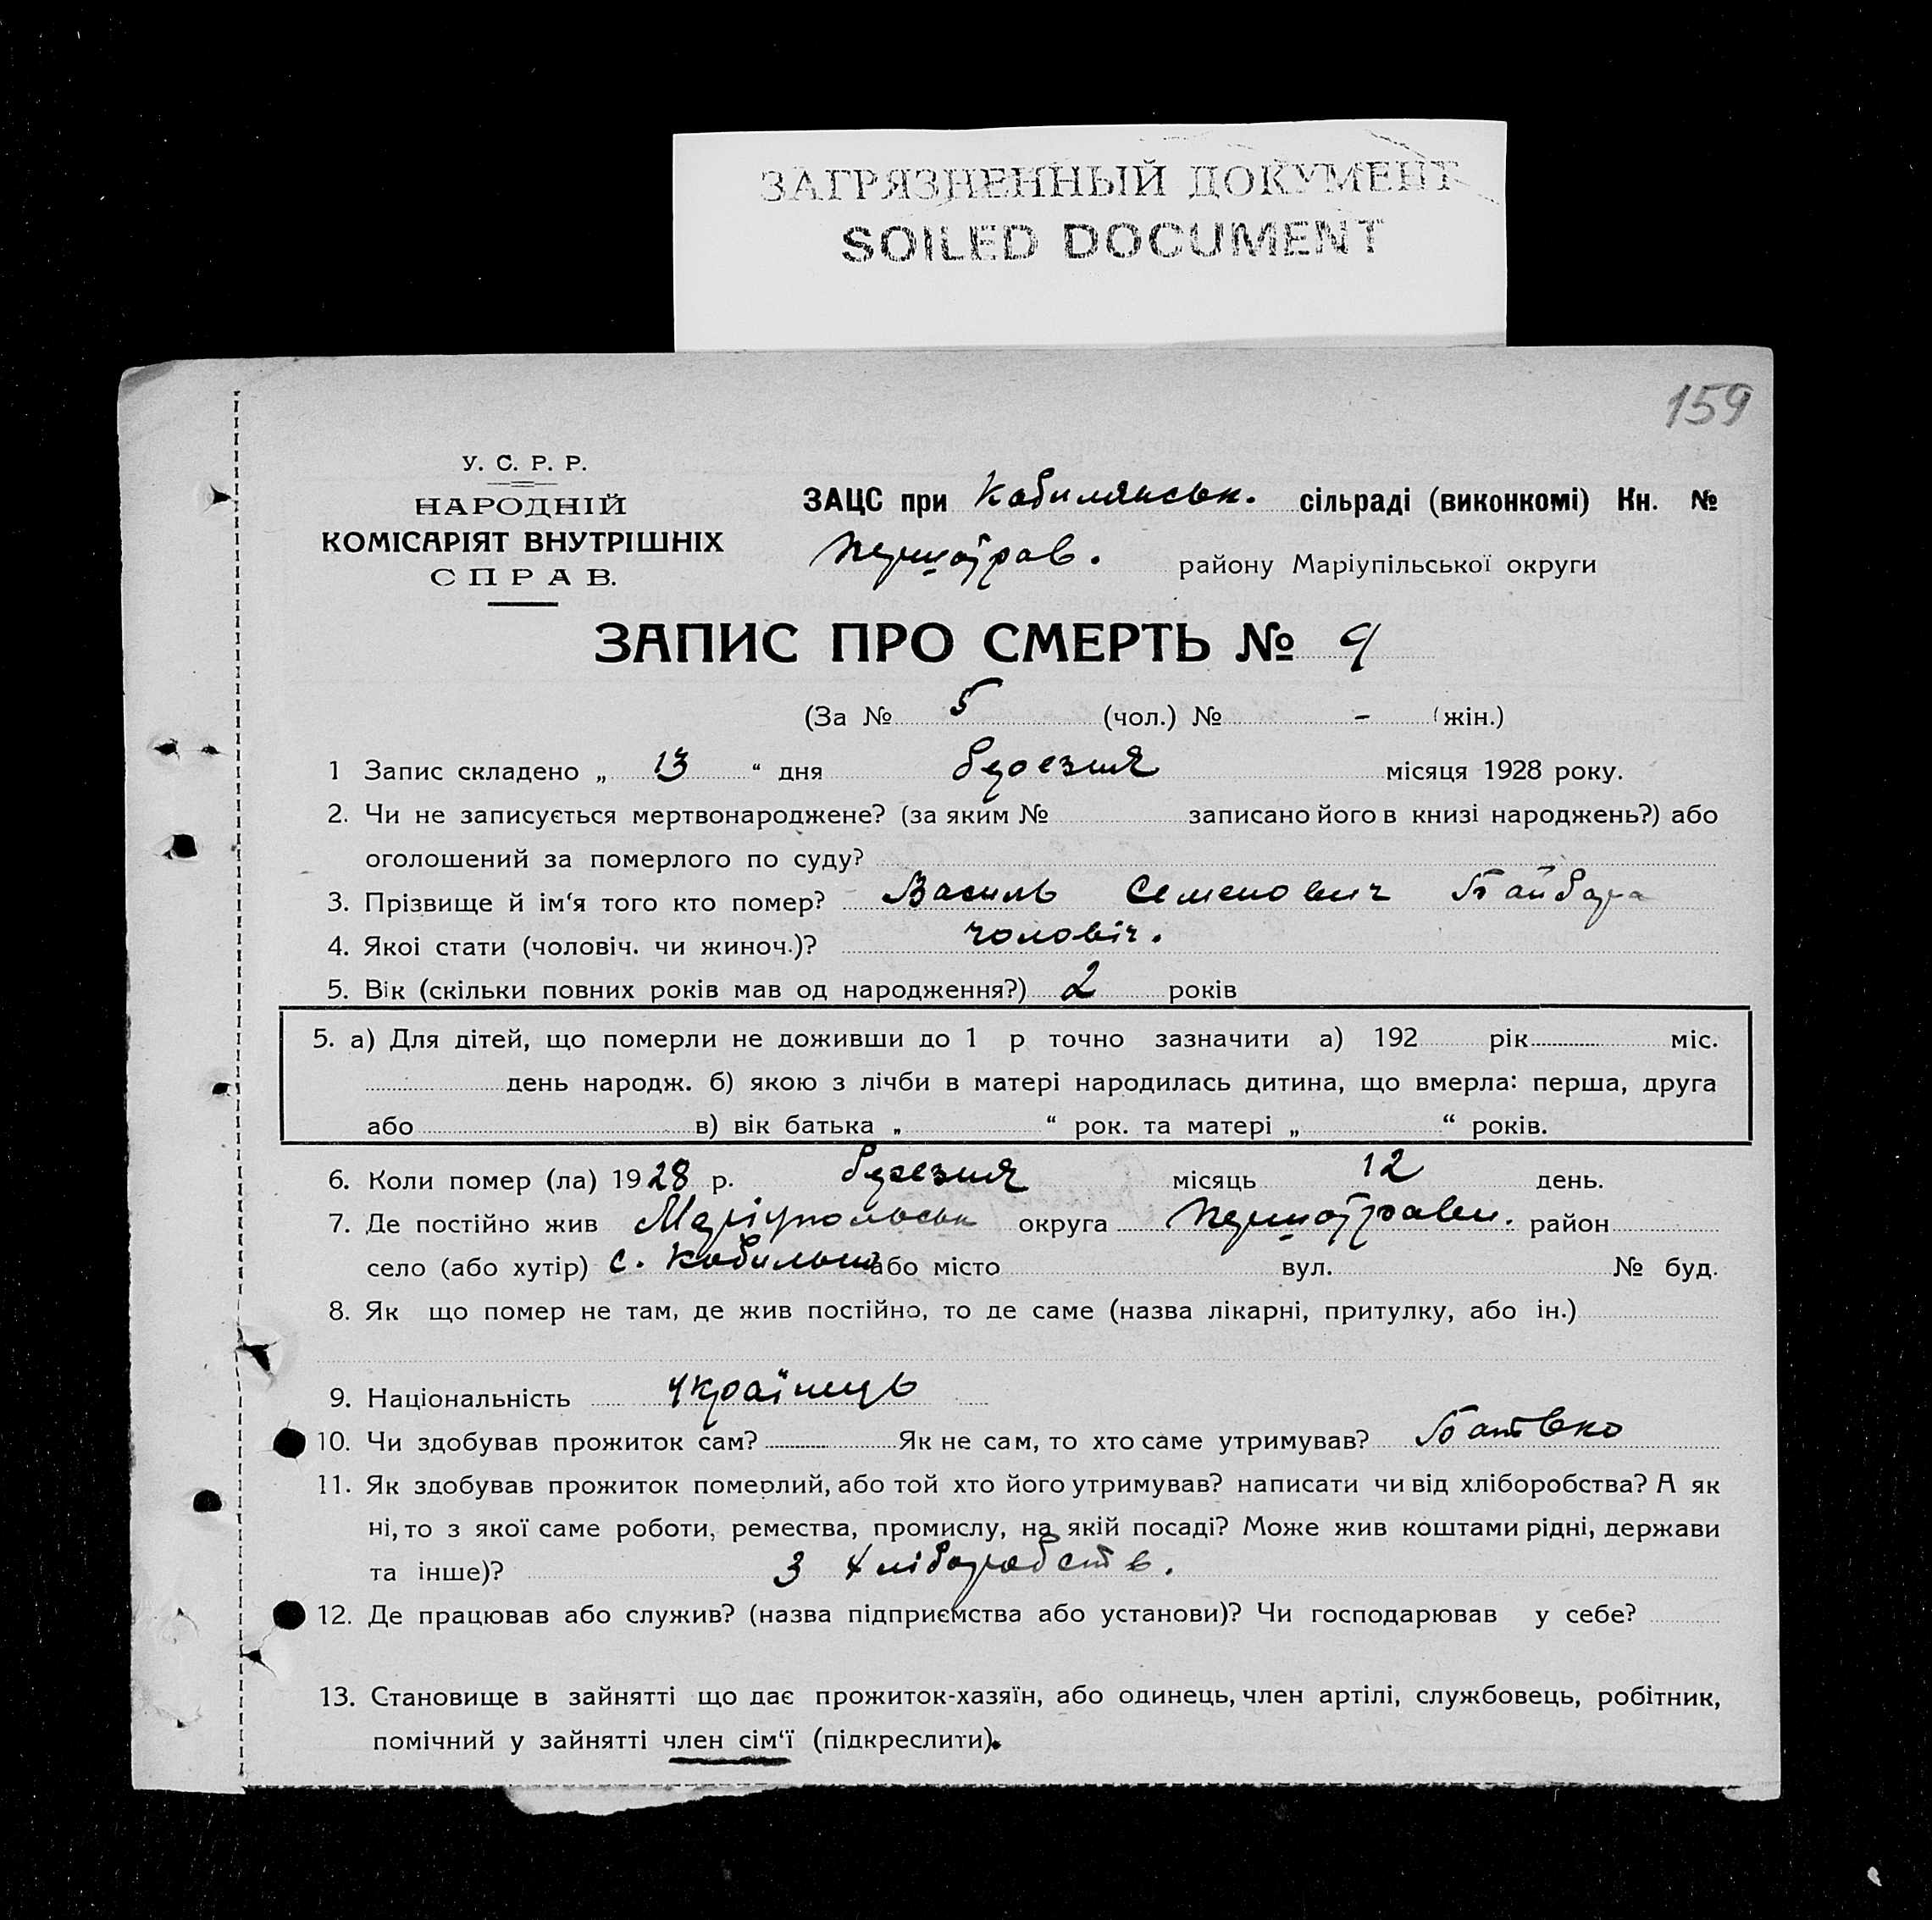 ЗАГРЯЗНЕННЫЙ ДОКУМЕНТ
SOILED DOCUMENT
159
У. С. Р. Р.
НАРОДНІЙ
КОМІСАРІЯТ ВНУТРІШНІХ
СПРАВ.
ЗАЦС при Кобилянськ. сільраді (виконкомі) Кн. №
Першотрав. району Маріупільської округи
ЗАПИС ПРО СМЕРТЬ № 9
(За № 5 (чол.) № - (жін.)
1 Запис складено „ 13 “ дня березня місяця 1928 року.
2. Чи не записується мертвонароджене? (за яким № записано його в книзі народжень?) або
оголошений за померлого по суду?
3. Прізвище й ім‘я того кто помер? Василь Семенович Байбара
4. Якоі стати (чоловіч. чи жиноч.)? чоловіч.
5. Вік (скільки повних років мав од народження?) 2 років
5. а) Для дітей, що померли не доживши до 1 р точно зазначити а) 192 рік міс.
день народж. б) якою з лічби в матері народилась дитина, що вмерла: перша, друга
або в) вік батька „ “ рок. та матері „ “ років.
6. Коли помер (ла) 1928 р. березня місяць 12 день.
7. Де постійно жив Маріупольськ округа Першотравен. район
село (або хутір) с. Кобильня або місто вул. № буд.
8. Як що помер не там, де жив постійно, то де саме (назва лікарні, притулку, або ін.)
9. Національність українець
10. Чи здобував прожиток сам? Як не сам, то хто саме утримував? Батько
11. Як здобував прожиток померлий, або той хто його утримував? написати чи від хліборобства? А як
ні, то з якої саме роботи, ремества, промислу, на якій посаді? Може жив коштами рідні, держави
та інше)? З хліборобств.
12. Де працював або служив? (назва підприємства або установи)? Чи господарював у себе?
13. Становище в зайнятті що дає прожиток-хазяїн, або одинець, член артілі, службовець, робітник,
помічний у зайнятті член сім‘ї (підкреслити).